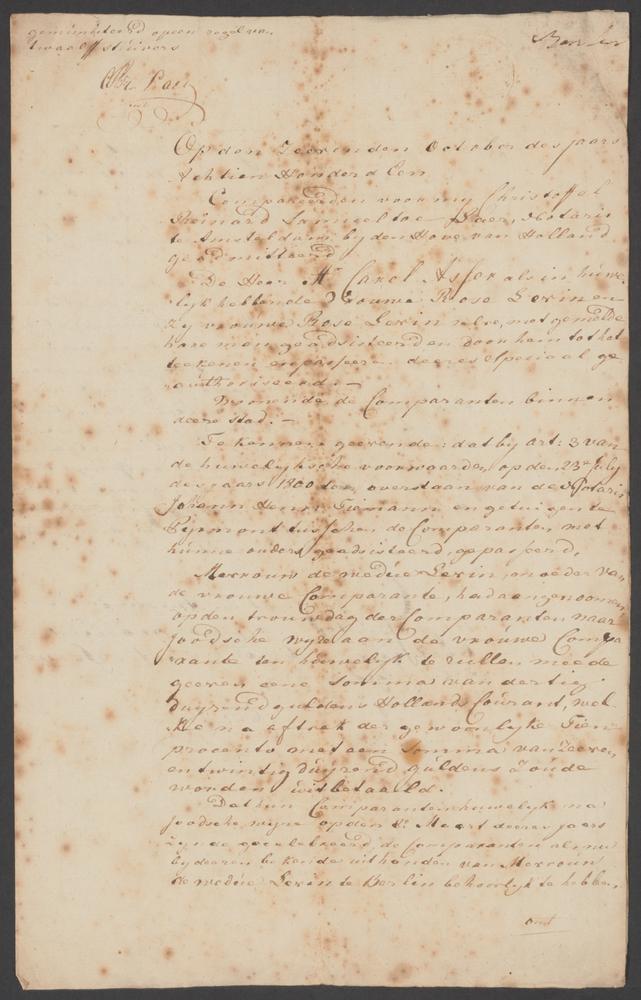 geminuteerd op een zegel van
twaalff stuivers
Op den Zeevenden October des jaars
Achtien Honderd Een
Compareerden voor my Christoffel
Reinard Samuel toe Laer, Notaris
te Amsteldam, by den Hove van Holland
geadmitteerd
De Heer Mr Carel Asser als in huwe
lyk hebbende Vrouwe Rose Levin en
Zy vrouwe Rose Levin zelve, met gemelde
hare man geadsisteerd en door hem tot het
teekenen en passeere dezes speciaal ge
authoriseerd. —
Wonende de Comparanten binnen
deeze stad. —
Te kennen geevende: dat by art: 3 van
de huwelyksche voorwaarden, op den 23e July
des jaars 1800 ten overstaan van de Notaris
Johann Henr: Tiemann en getuigen te
Pyrmont tusschen de Comparanten met
hunne ouders geadsisteerd, gepasseerd,
Mevrouw de weduwe Levin, moeder van
de vrouwe Comparante, had aangenoomen
op den trouwdag der Comparanten naar
Joodsche wyze aan de vrouwe Compa
rante ten huwelyk te zullen meede
geeven eene somma van dertig
duyzend guldens Hollands Courant, wel
ke na aftrek der gewoonlyke Tien
procento met een somma van Zeeven
en twintig duyzend guldens zoude
worden uitbetaald.
Dat hun Comparanten huwelyk na
Joodsche wyze op den Meert deezes jaars
zynde gecelebreerd, de Comparanten als nu
by deezen bekende uit handen van Mevrouw
de weduwe Levin te Berlin behoorlyk te hebben
ont